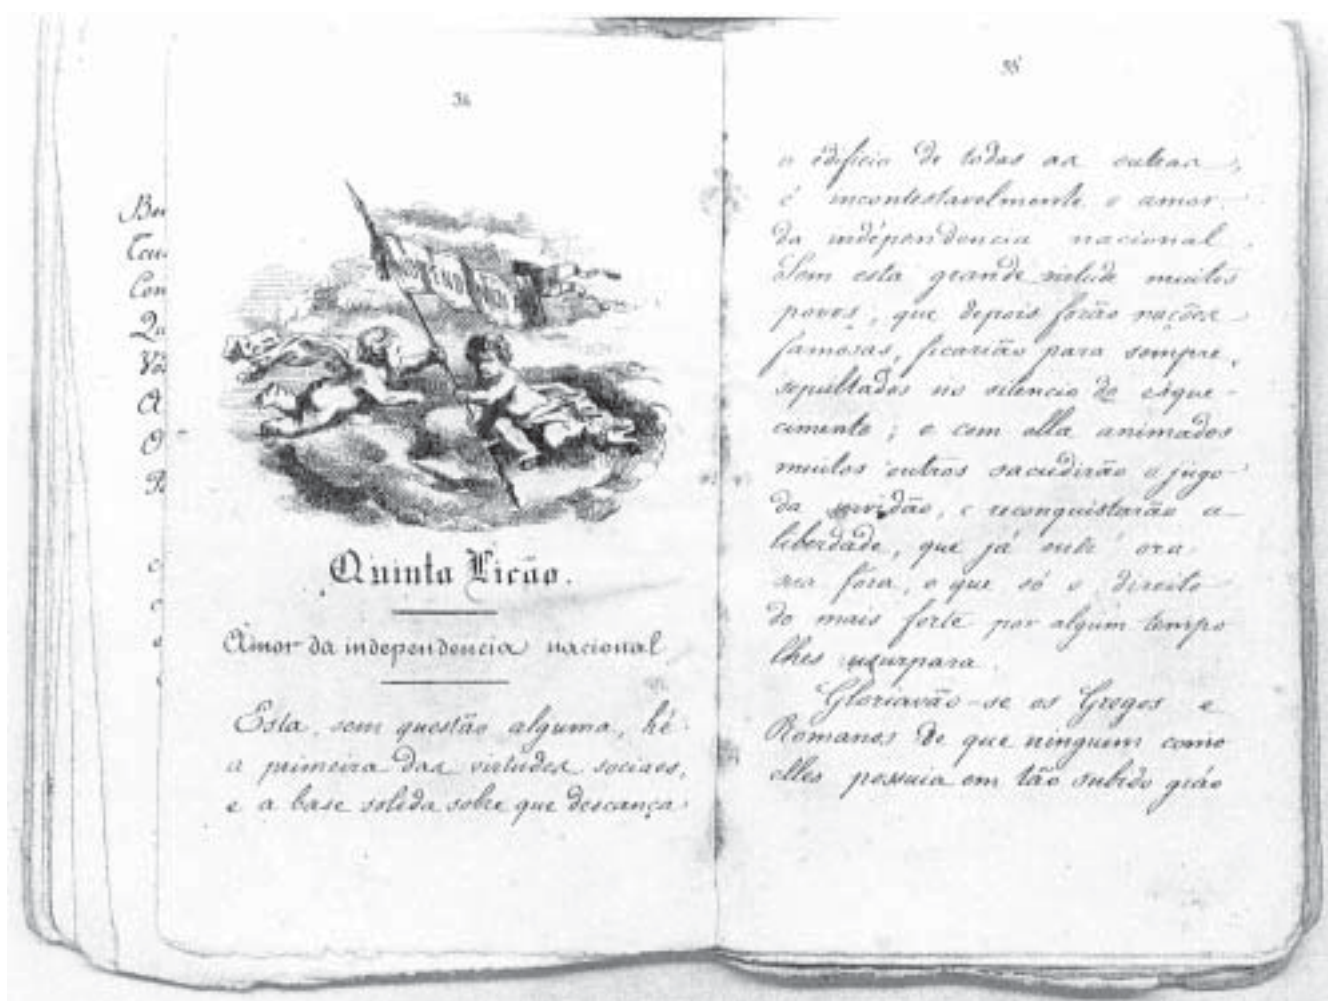 34
Quinta Lição.
Amor da independencia nacional
Esta, sem questão alguma, hé
a primeira das virtudes sociaes,
e a base solida sobre que descança
35
o edificio de todas as outras,
é incontestavelmente o amor
da indépendencia nacional.
Sem esta grande virtude muitos
povos, que depois forão nações
famosas, ficarião para sempre,
sepultados no silencio do esque-
cimento; e com ella animados
muitos outros sacudirão o jugo
da servidão, e reconquistarão a
liberdade, que já outr'ora
sea fora, e que só o direito
do mais forte por algum tempo
lhes usurpara.
Gloriavão-se os Gregos e
Romanos de que ninguem como
elles possuia em tão subido gráo